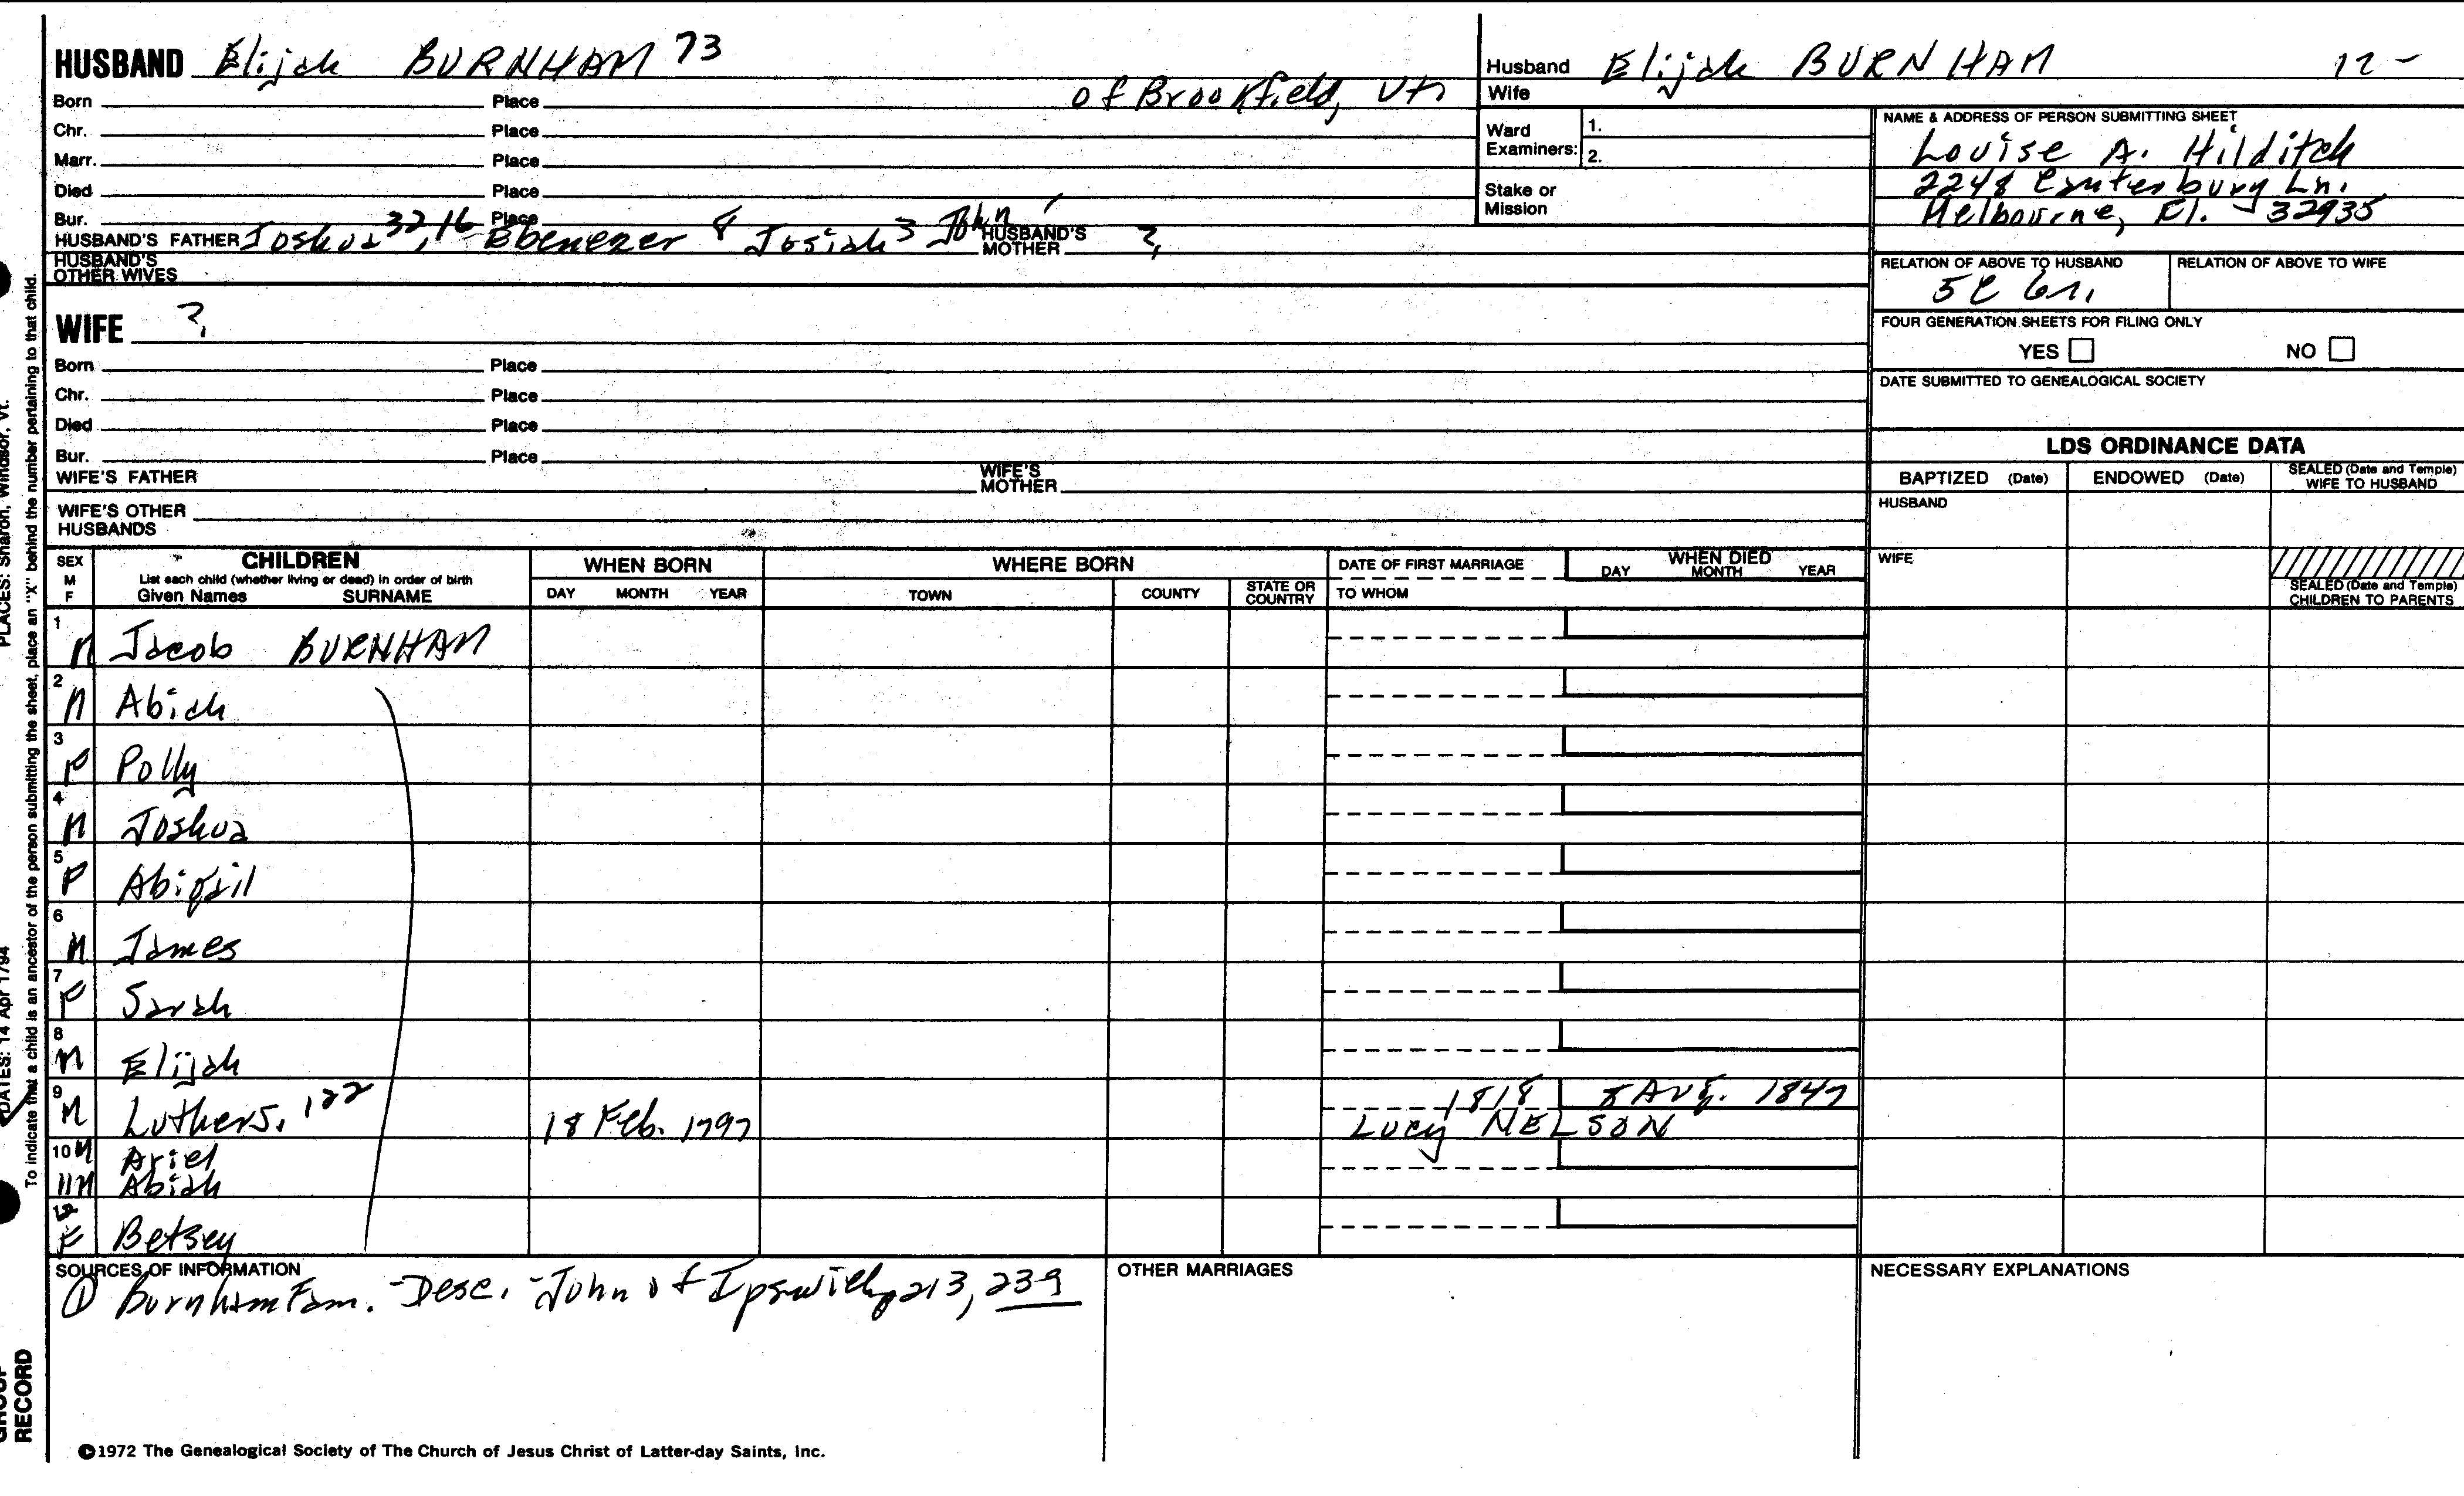 HUSBAND Elijah BURNHAM 73
Born Place of Brookfield, Vt.
Chr. Place
Marr. Place
Died Place
Bur. Place
HUSBAND'S FATHER Joshua 32, 16 Ebenezer 8 Josiah 3 John 1 HUSBAND'S MOTHER ?
HUSBAND'S OTHER WIVES
Husband Elijah BURNHAM 12-
Wife
Ward Examiners: 1.
2.
Stake or Mission
NAME & ADDRESS OF PERSON SUBMITTING SHEET
Louise A. Hilditch
2248 Canterbury Ln.
Melbourne, Fl. 32935
RELATION OF ABOVE TO HUSBAND RELATION OF ABOVE TO WIFE
5C
FOUR GENERATION SHEETS FOR FILING ONLY
YES NO
DATE SUBMITTED TO GENEALOGICAL SOCIETY
WIFE ?
Born Place
Chr. Place
Died Place
Bur. Place
WIFE'S FATHER WIFE'S MOTHER
WIFE'S OTHER HUSBANDS
LDS ORDINANCE DATA
BAPTIZED (Date) ENDOWED (Date) SEALED (Date and Temple) WIFE TO HUSBAND
HUSBAND
WIFE
SEALED (Date and Temple) CHILDREN TO PARENTS
SEX M F CHILDREN WHEN BORN WHERE BORN DATE OF FIRST MARRIAGE WHEN DIED
List each child (whether living or dead) in order of birth
Given Names SURNAME DAY MONTH YEAR TOWN COUNTY STATE OR COUNTRY TO WHOM DAY MONTH YEAR
1 M Jacob BURNHAM
2 M Abiah
3 F Polly
4 M Joshua
5 F Abigail
6 M James
7 F Sarah
8 M Elijah
9 M Luther S. 122 18 Feb. 1797 1818 8 Aug. 1847
Lucy NELSON
10 M Ariel
11 M Abiah
12 F Betsey
SOURCES OF INFORMATION
① Burnham Fam. - Desc. - John of Ipswich, p 213, 239
OTHER MARRIAGES
NECESSARY EXPLANATIONS
©1972 The Genealogical Society of The Church of Jesus Christ of Latter-day Saints, Inc.
PLACES: Sharon, Windsor, Vt.
DATES: 14 Apr 1794
To indicate that a child is an ancestor of the person submitting the sheet, place an "X" behind the number pertaining to that child.
GROUP
RECORD